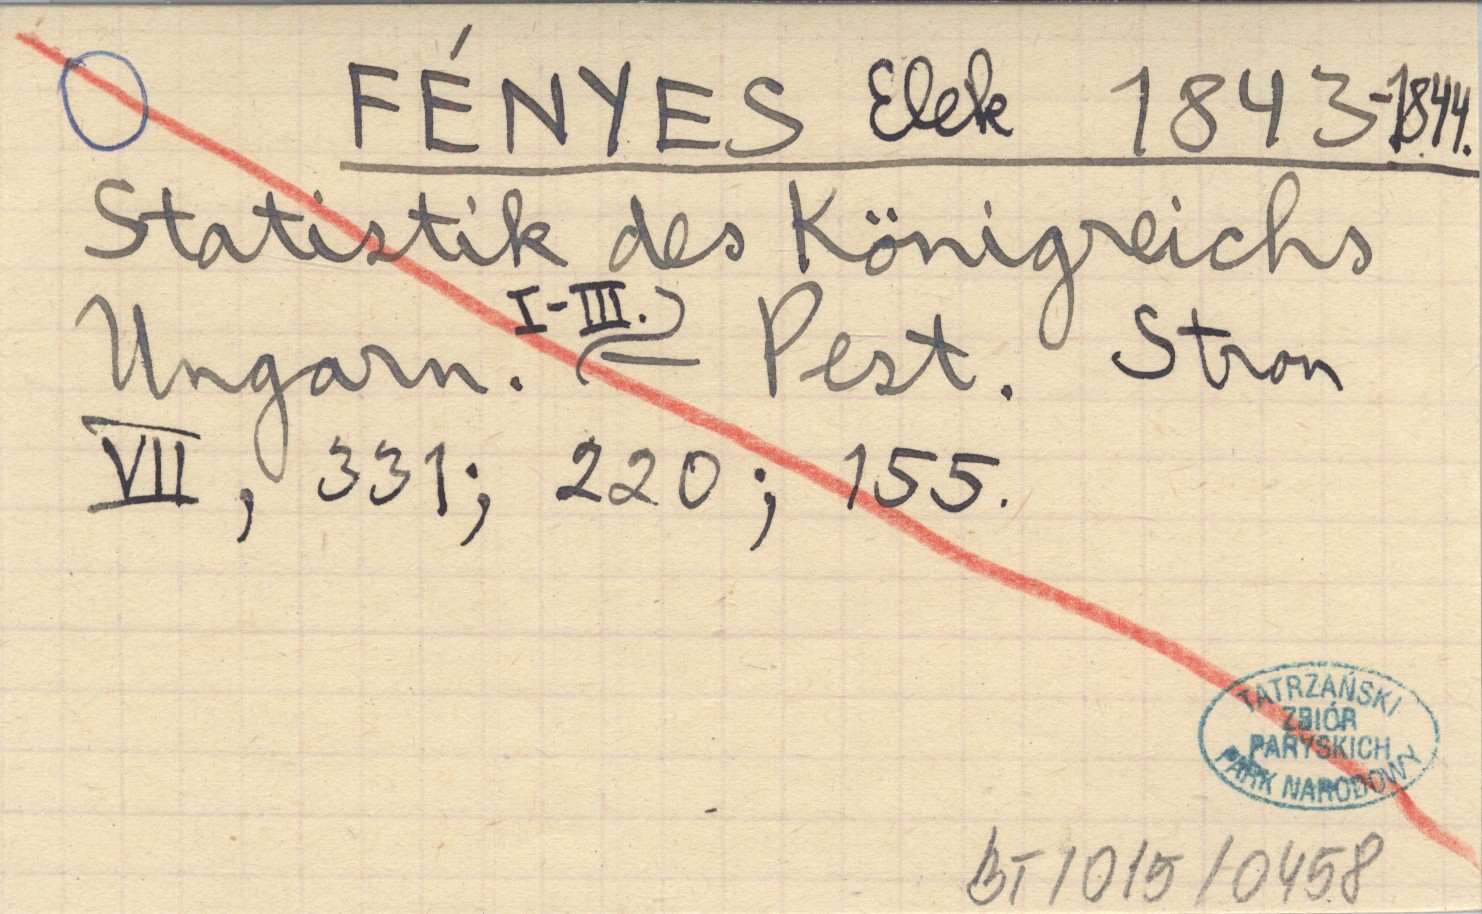 FÉNYES Elek 1843-1844.
Statistik des Königreichs
Ungarn. I-III. Pest. Stron
VII, 331; 220; 155.
TATRZAŃSKI
ZBIÓR
PARYSKICH
PARK NARODOWY
BT/015/0458